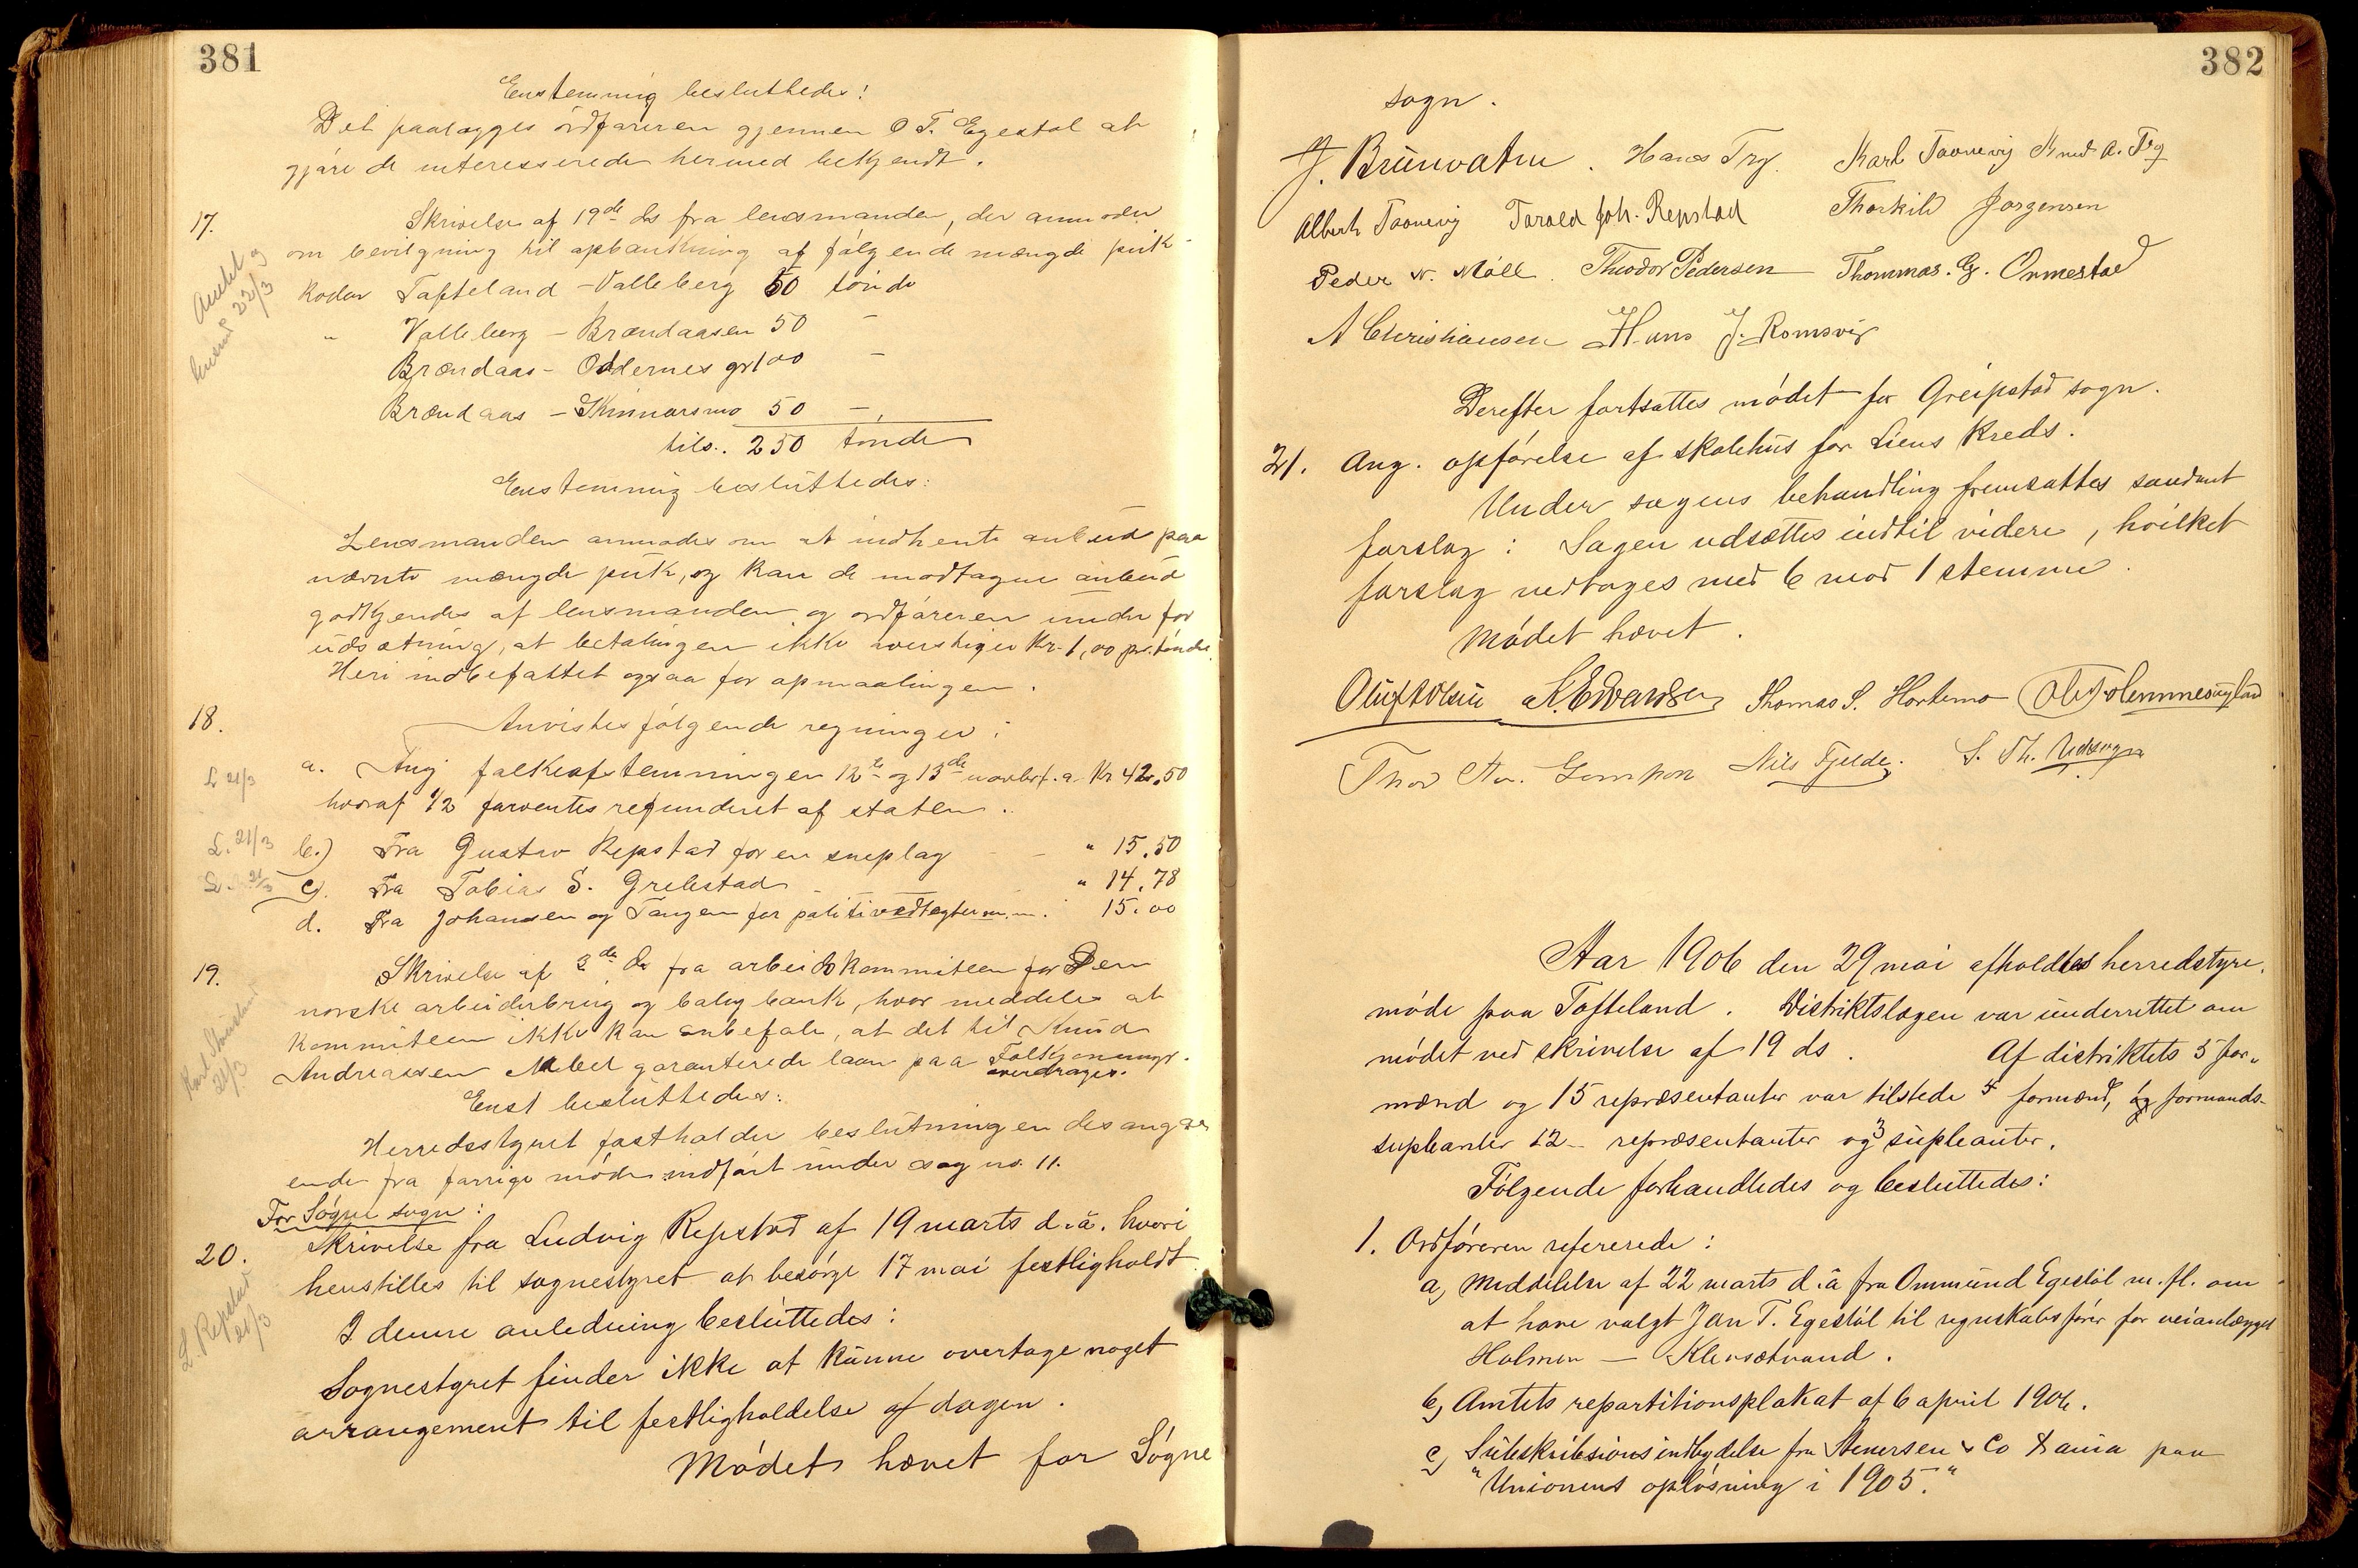 381
Enstemmig besluttedes!
Det paalægges ordføreren gjennem O T. Egestøl at
gjøre de interesserede hermed bekjendt.
17. Skrivelse af 19de ds fra lensmanden, der anmoder
om bevilgning til opbankning af følgende mængde puk-
Roder Tofteland - Valleberg 50 tønder
" Valleberg - Brændaasen 50 -
Brændaas - Oddernes gr 100 -
Brændaas - Kinnarsmo 50 -
tils. 250 tønder
Enstemmig besluttedes:
Lensmanden anmodes om at indhente anbud paa
nævnte mængde puk, og kan de modtagne anbud
godkjendes af lensmanden og ordføreren under for
udsætning, at betalingen ikke overstiger Kr. 1,00 pr. tønde.
Heri indbefattet ogsaa for opmaalingen.
18. Anvistes følgende regninger:
L 21/3 a. Ang folkeafstemningen 12te og 13de novbr f. a. Kr 42.50
hvoraf 1/2 forventes refunderet af staten.
L. 21/3 b.) Fra Gustav Repstad for en sneplog - - " 15.50
L. 21/3 c). Fra Tobias S. Grebstad - " 14.78
d. Fra Johansen og Tangen for politivedtegter m.m. 15.00
19. Skrivelse af 3de ds fra arbeidskommiteen for Den
norske arbeiderbrug og boligbank, hvor meddeles at
kommiteen ikke kan anbefale, at det til Knud
Andreassen Møbel garanterede laan paa Folkj
overdrages.
Enst besluttedes:
Herredsstyret fastholder beslutningen desangaa
ende fra forrige møde indført under sag no. 11.
For Søgne sogn:
20. Skrivelse fra Ludvig Repstad af 19 marts d.a. hvori
L. Repstad 21/3
henstilles til sognestyret at besørge 17 mai festligholdt.
I denne anledning besluttedes:
Sognestyret finder ikke at kunne overtage noget
arrangement til festligholdelse af dagen.
Mødet hævet for Søgne
382
sogn.
J. Brunvatne. Hans Try. Karl Taanevig Knud A. Try
Albert Taanevig Torald Joh. Repstad Thorkild Jørgensen
Peder N. Møll. Theodor Pedersen Thommas. G. Ormestad
A Christiansen Hans J. Romsvig
Derefter fortsattes mødet for Greipstad sogn.
21. Ang. opførelse af skolehus for Liens Kreds.
Under sagens behandling fremsattes saadant
forslag: Sagen udsættes indtil videre, hvilket
forslag vedtages med 6 mod 1 stemme.
Mødet hævet.
Oluf Olsen K. Edvardsen Thomas S. Hortemo
Thor Nils Fjelde. S. Th.
Aar 1906 den 29 mai afholdtes herredstyre.
møde paa Tofteland. Distriktslægen var underrettet om
mødet ved skrivelse af 19 ds. Af distriktets 5 for-
mænd og 15 repræsentanter var tilstede 4 formænd, og formands-
supleanter 12 - repræsentanter og 3 supleanter.
Følgende forhandledes og besluttedes:
1. Ordføreren refererede:
a, Meddelelse af 22 marts d.a fra Ommund Egestøl m. fl. om
at have valgt Jan T. Egestøl til regnskabsfører for veianlægget
Holmen - Klevsetrand.
b, Amtets repartitionsplakat af 6 april 1906.
c, Subskribsionsindbydelse fra Stenersen & Co Xania paa
"Unionens opløsning i 1905."